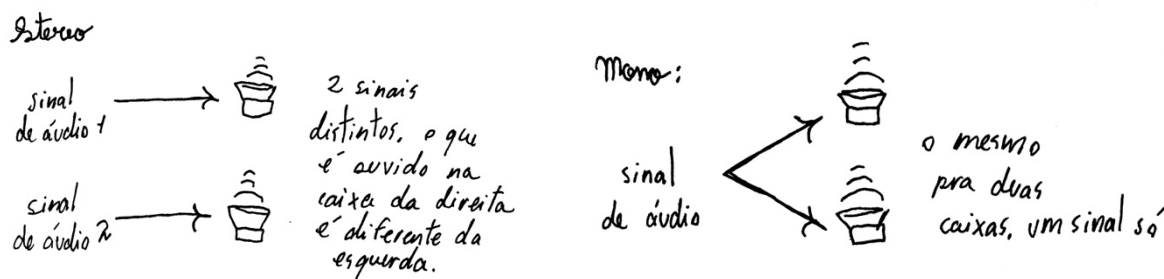 Stereo
sinal
de áudio 1
sinal
de áudio 2
2 sinais
distintos, o que
é ouvido na
caixa da direita
é diferente da
esquerda.
Mono:
sinal
de áudio
o mesmo
pra duas
caixas, um sinal só